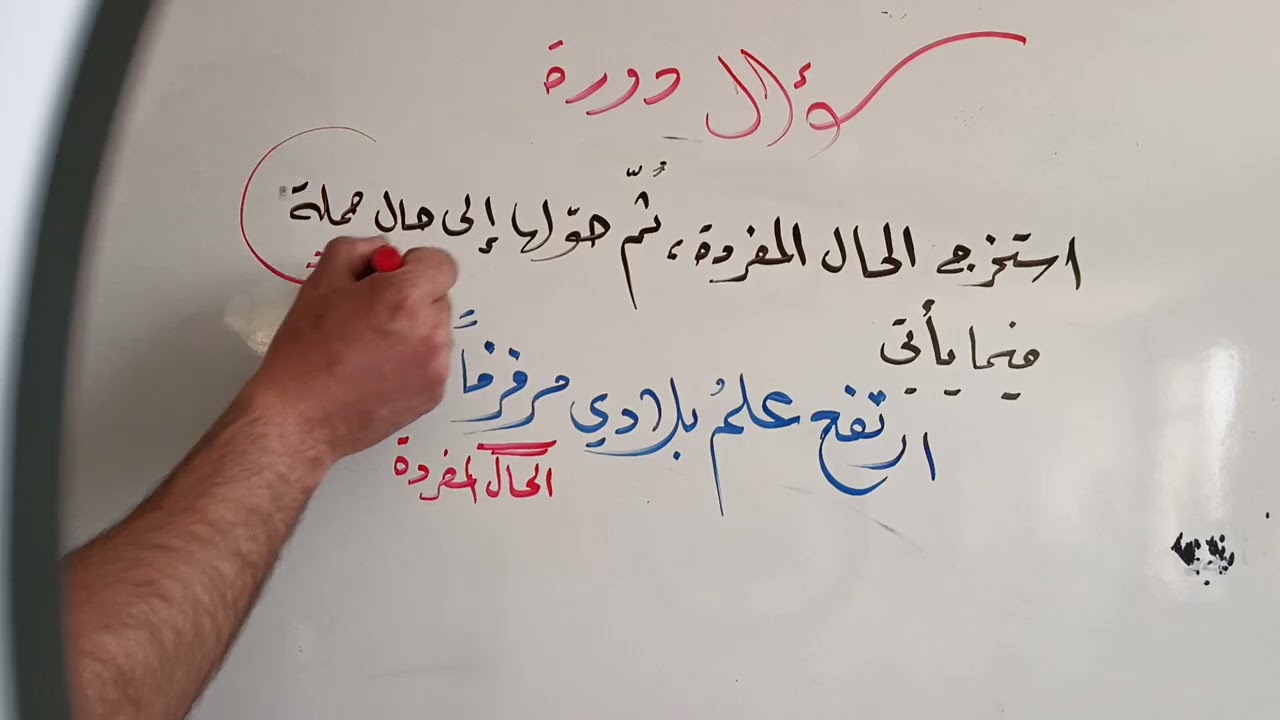 سؤال دورة
استخرج الحال المفردة، ثُمّ حوّلها إلى حال جملة
فيما يأتي
ارتفع علمُ بلادي مرفرفاً
الحال المفردة